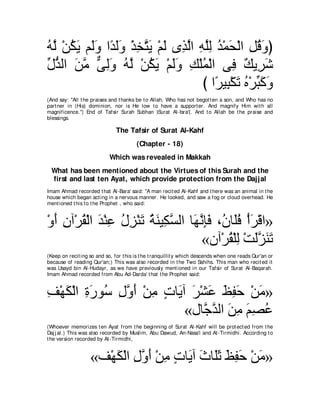 وَقُلِ الْحَمْدُ لِلَّهِ الَّذِى لَمْ يَتَّخِذْ وَلَدًا وَلَمْ يَكُنْ لَّهُ
شَرِيكٌ فِى الْمُلْكِ وَلَمْ يَكُنْ لَّهُ وَلِىٌّ مِّنَ الذُّلِّ
وَكَبِّرْهُ تَكْبِيرًا )
(And say: "All the praises and thanks be to Allah, Who has not begotten a son, and Who has no
partner in (His) dominion, nor is He low to have a supporter. And magnify Him with all
magnificence.") End of Tafsir Surah Subhan (Surat Al-Isra'). And to Allah be the praise and
blessings.
The Tafsir of Surat Al-Kahf
(Chapter - 18)
Which was revealed in Makkah
What has been mentioned about the Virtues of this Surah and the
first and last ten Ayat, which provide protection from the Dajjal
Imam Ahmad recorded that Al-Bara' said: "A man recited Al-Kahf and there was an animal in the
house which began acting in a nervous manner. He looked, and saw a fog or cloud overhead. He
mentioned this to the Prophet , who said:
«اقْرَأْ فُلَانُ، فَإِنَّهَا السَّكِينَةُ تَنْزِلُ عِنْدَ الْقُرْآنِ أَوْ
تَنَزَّلَتْ لِلْقُرْآنِ»
(Keep on reciting so and so, for this is the tranquillity which descends when one reads Qur'an or
because of reading Qur'an;) This was also recorded in the Two Sahihs. This man who recited it
was Usayd bin Al-Hudayr, as we have previously mentioned in our Tafsir of Surat Al-Baqarah.
Imam Ahmad recorded from Abu Ad-Darda' that the Prophet said:
«مَنْ حَفِظَ عَشْرَ آيَاتٍ مِنْ أَوَّلِ سُورَةِ الْكَهْفِ
عُصِمَ مِنَ الدَّجَّالِ»
(Whoever memorizes ten Ayat from the beginning of Surat Al-Kahf will be protected from the
Dajjal.) This was also recorded by Muslim, Abu Dawud, An-Nasa'i and At-Tirmidhi. According to
the version recorded by At-Tirmidhi,
«مَنْ حَفِظَ ثَلَاثَ آيَاتٍ مِنْ أَوَّلِ الْكَهْفِ»